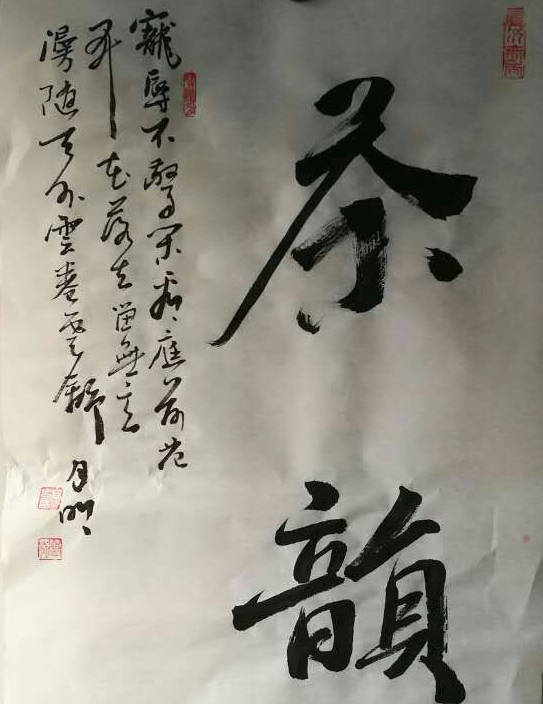 茶韻
寵辱不驚閑看庭前花
開花落去留無意
漫隨天外雲卷雲舒
月明